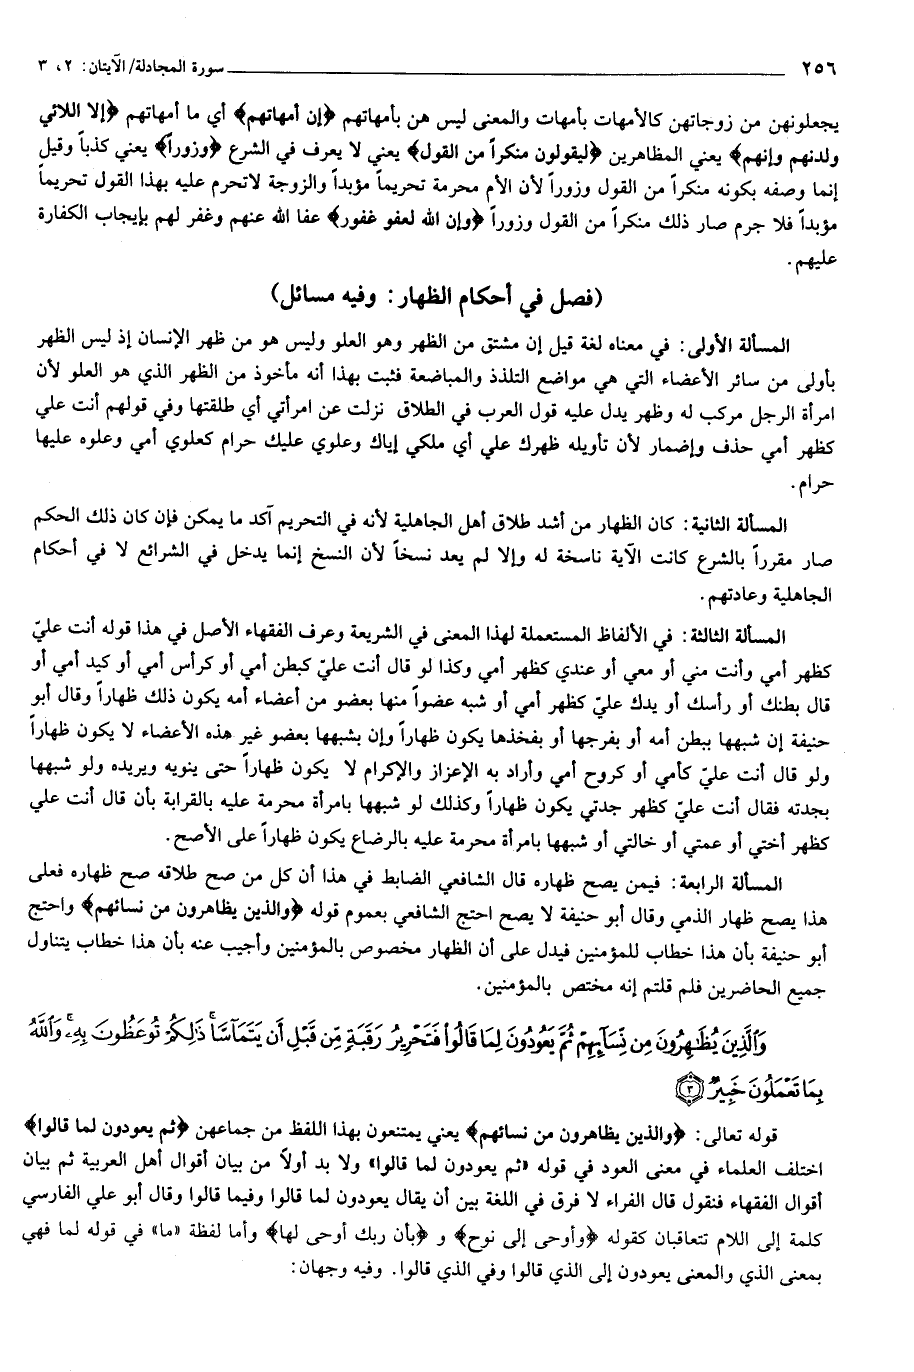 ٢٥٦ سورة المجادلة/ الآيتان: ٢، ٣
يجعلونهن من زوجاتهن كالأمهات بأمهات والمعنى ليس هن بأمهاتهم ﴿إن أمهاتهم﴾ أي ما أمهاتهم ﴿إلا اللائي
ولدنهم وإنهم﴾ يعني المظاهرين ﴿ليقولون منكراً من القول﴾ يعني لا يعرف في الشرع ﴿وزوراً﴾ يعني كذباً وقيل
إنما وصفه بكونه منكراً من القول وزوراً لأن الأم محرمة تحريماً مؤبداً والزوجة لاتحرم عليه بهذا القول تحريماً
مؤبداً فلا جرم صار ذلك منكراً من القول وزوراً ﴿وإن الله لعفو غفور﴾ عفا الله عنهم وغفر لهم بإيجاب الكفارة
عليهم.
(فصل في أحكام الظهار: وفيه مسائل)
المسألة الأولى: في معناه لغة قيل إن مشتق من الظهر وهو العلو وليس هو من ظهر الإنسان إذ ليس الظهر
بأولى من سائر الأعضاء التي هي مواضع التلذذ والمباضعة فثبت بهذا أنه مأخوذ من الظهر الذي هو العلو لأن
امرأة الرجل مركب له وظهر يدل عليه قول العرب في الطلاق نزلت عن امرأتي أي طلقتها وفي قولهم أنت علي
كظهر أمي حذف وإضمار لأن تأويله ظهرك علي أي ملكي إياك وعلوي عليك حرام كعلوي أمي وعلوه عليها
حرام.
المسألة الثانية: كان الظهار من أشد طلاق أهل الجاهلية لأنه في التحريم آكد ما يمكن فإن كان ذلك الحكم
صار مقرراً بالشرع كانت الآية ناسخة له وإلا لم يعد نسخاً لأن النسخ إنما يدخل في الشرائع لا في أحكام
الجاهلية وعادتهم.
المسألة الثالثة: في الألفاظ المستعملة لهذا المعنى في الشريعة وعرف الفقهاء الأصل في هذا قوله أنت عليّ
كظهر أمي وأنت مني أو معي أو عندي كظهر أمي وكذا لو قال أنت عليّ كبطن أمي أو كرأس أمي أو كيد أمي أو
قال بطنك أو رأسك أو يدك عليّ كظهر أمي أو شبه عضواً منها بعضو من أعضاء أمه يكون ذلك ظهاراً وقال أبو
حنيفة إن شبهها ببطن أمه أو بفرجها أو بفخذها يكون ظهاراً وإن بشبهها بعضو غير هذه الأعضاء لا يكون ظهاراً
ولو قال أنت عليّ كأمي أو كروح أمي وأراد به الإعزاز والإكرام لا يكون ظهاراً حتى ينويه ويريده ولو شبهها
بجدته فقال أنت عليّ كظهر جدتي يكون ظهاراً وكذلك لو شبهها بامرأة محرمة عليه بالقرابة بأن قال أنت علي
كظهر أختي أو عمتي أو خالتي أو شبهها بامرأة محرمة عليه بالرضاع يكون ظهاراً على الأصح.
المسألة الرابعة: فيمن يصح ظهاره قال الشافعي الضابط في هذا أن كل من صح طلاقه صح ظهاره فعلى
هذا يصح ظهار الذمي وقال أبو حنيفة لا يصح احتج الشافعي بعموم قوله ﴿والذين يظاهرون من نسائهم﴾ واحتج
أبو حنيفة بأن هذا خطاب للمؤمنين فيدل على أن الظهار مخصوص بالمؤمنين وأجيب عنه بأن هذا خطاب يتناول
جميع الحاضرين فلم قلتم إنه مختص بالمؤمنين.
وَٱلَّذِينَ يُظَٰهِرُونَ مِن نِّسَآئِهِمْ ثُمَّ يَعُودُونَ لِمَا قَالُوا۟ فَتَحْرِيرُ رَقَبَةٍ مِّن قَبْلِ أَن يَتَمَآسَّا ۚ ذَٰلِكُمْ تُوعَظُونَ بِهِۦ ۚ وَٱللَّهُ
بِمَا تَعْمَلُونَ خَبِيرٌ ﴿٣﴾
قوله تعالى: ﴿والذين يظاهرون من نسائهم﴾ يعني يمتنعون بهذا اللفظ من جماعهن ﴿ثم يعودون لما قالوا﴾
اختلف العلماء في معنى العود في قوله «ثم يعودون لما قالوا» ولا بد أولاً من بيان أقوال أهل العربية ثم بيان
أقوال الفقهاء فنقول قال الفراء لا فرق في اللغة بين أن يقال يعودون لما قالوا وفيما قالوا وقال أبو علي الفارسي
كلمة إلى اللام تتعاقبان كقوله ﴿وأوحى إلى نوح﴾ و ﴿بأن ربك أوحى لها﴾ وأما لفظة «ما» في قوله لما فهي
بمعنى الذي والمعنى يعودون إلى الذي قالوا وفي الذي قالوا. وفيه وجهان: